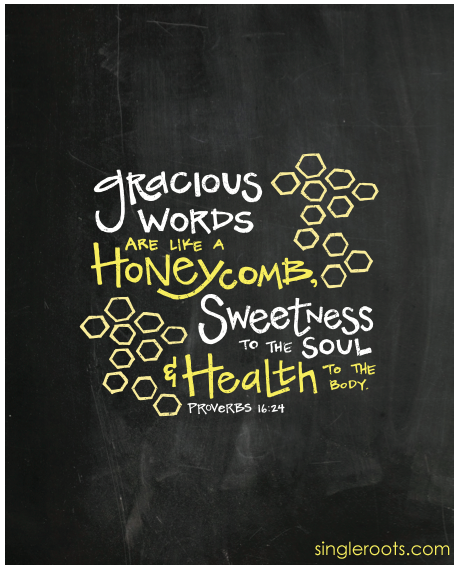 gracious
words
are like a
Honeycomb,
Sweetness
to the soul
& Health to the
body.
Proverbs 16:24
singleroots.com